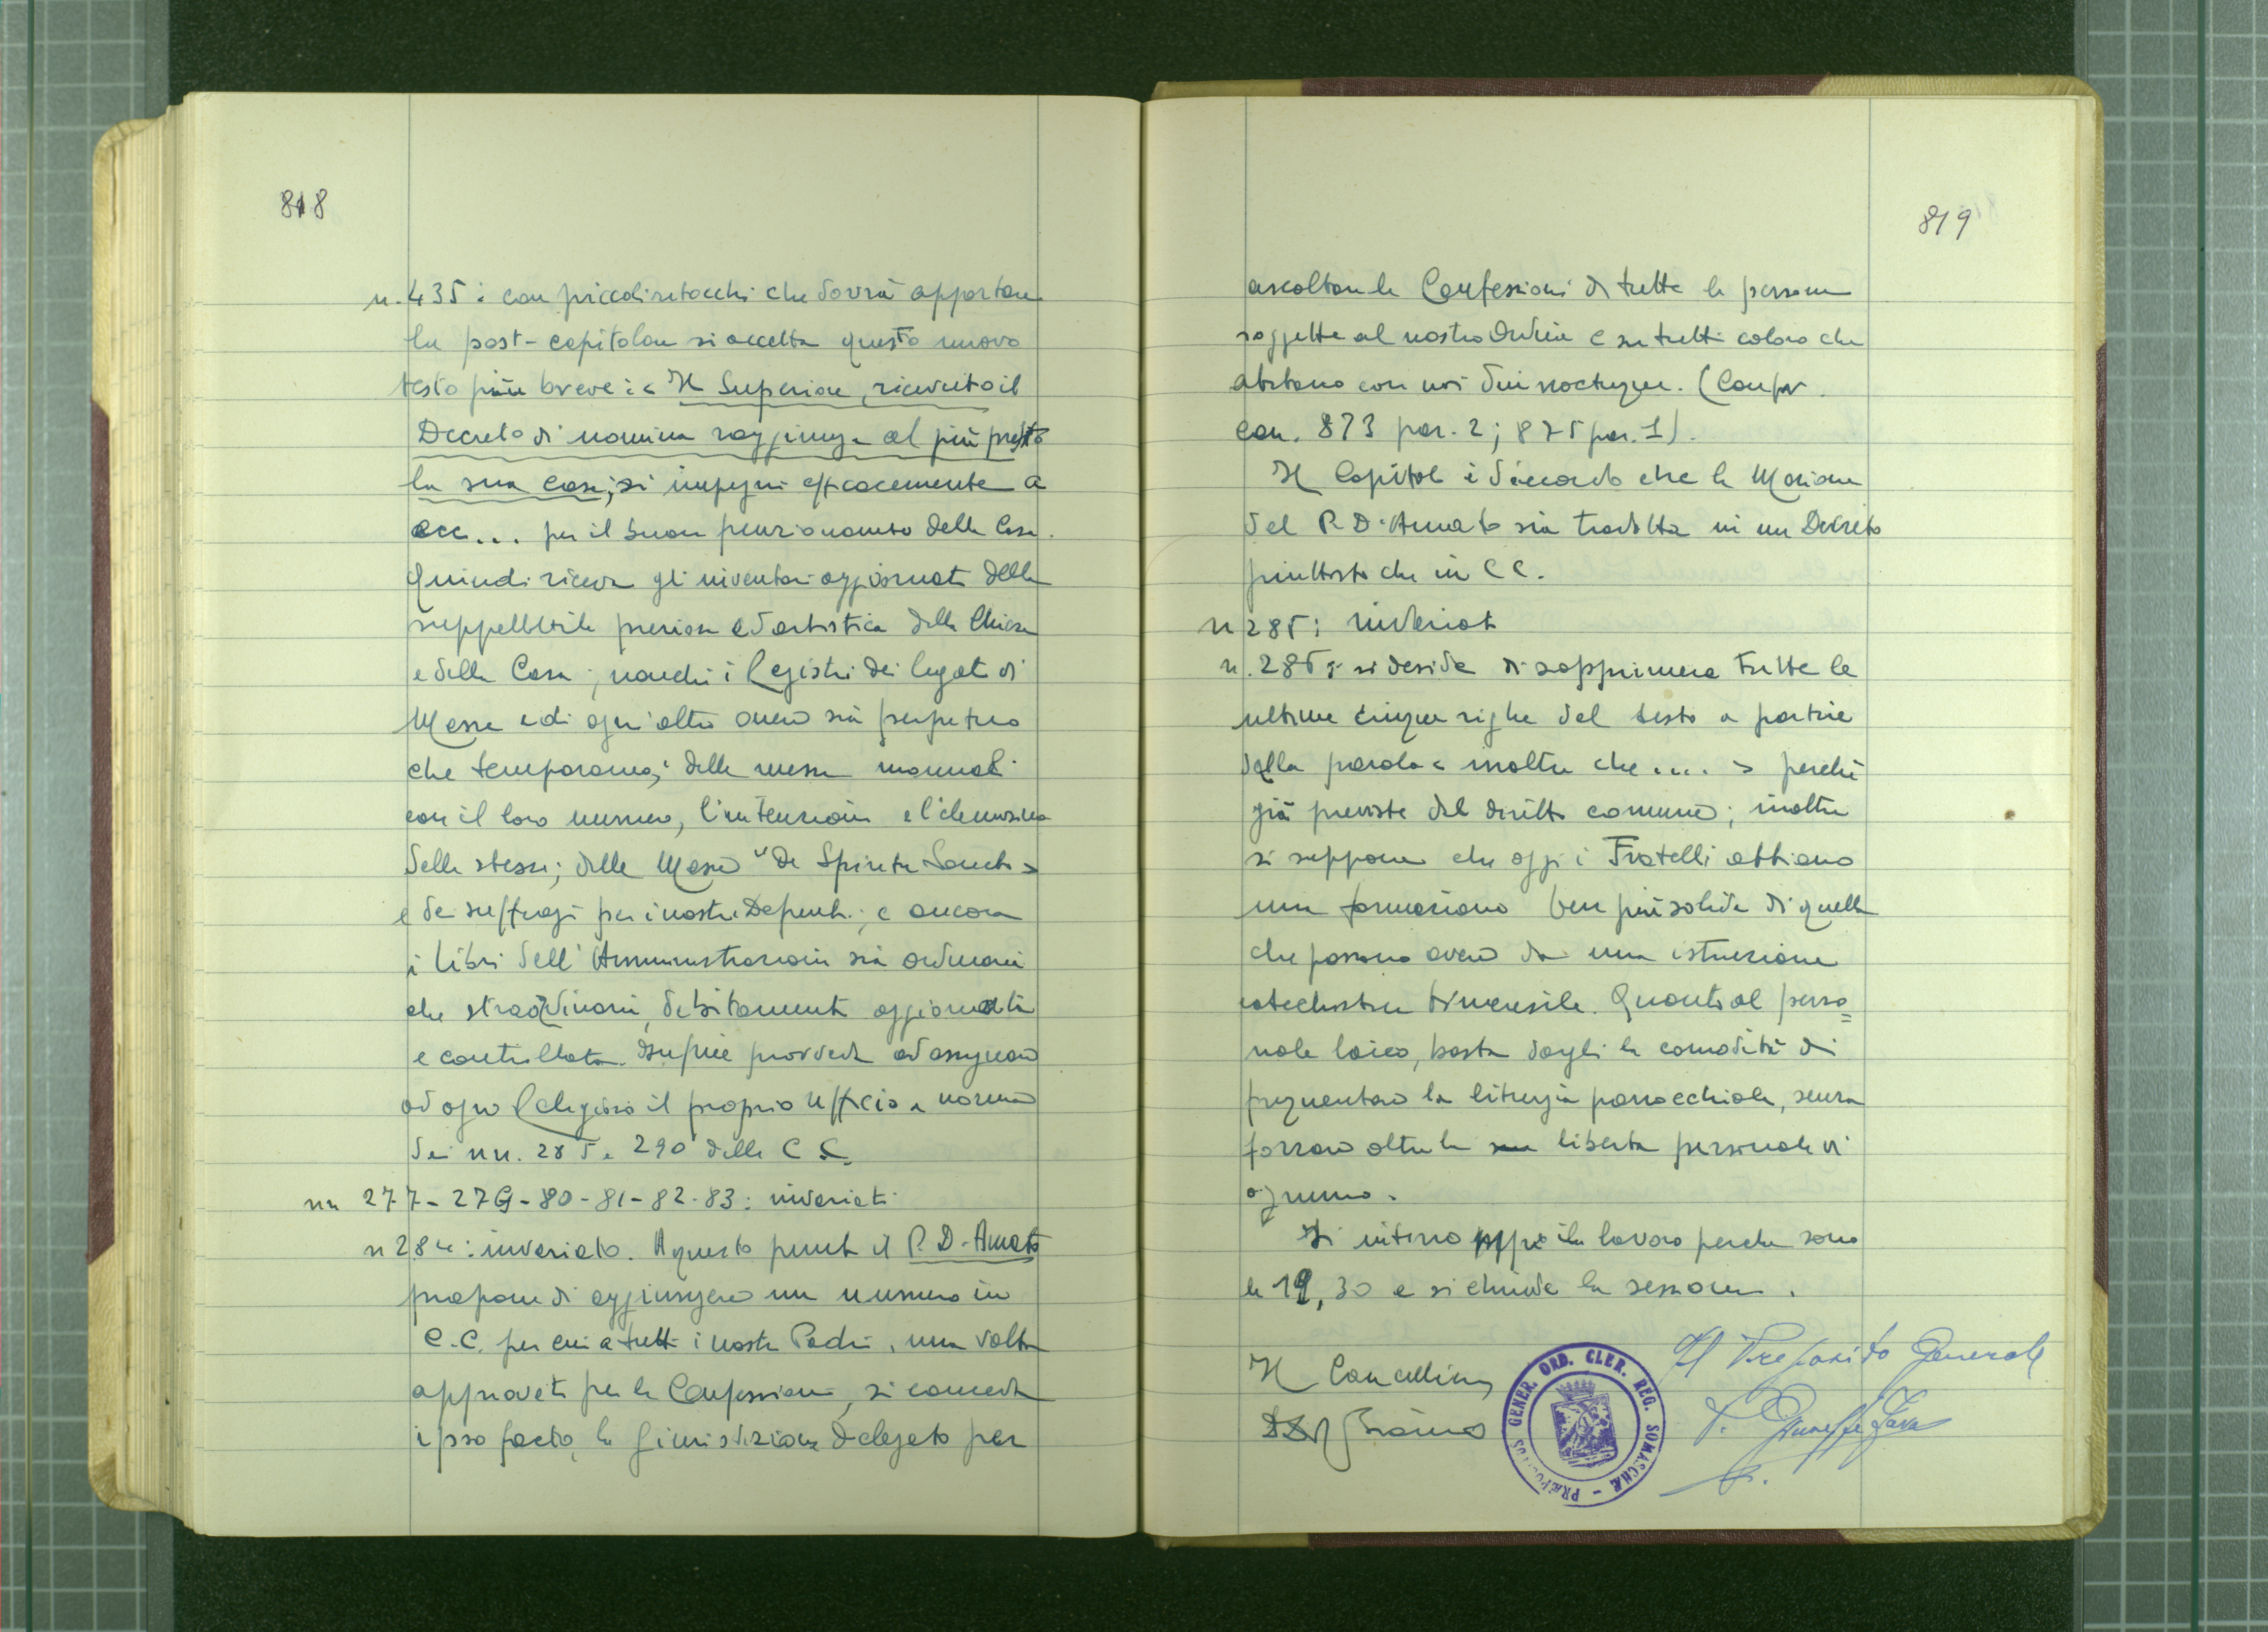 818
n. 435: con piccoli ritocchi che dovrà apportare
la post-capitolare si accetta questo nuovo
testo più breve: < Il Superiore, ricevuto il
Decreto di nomina raggiunga al più presto
la sua casa; si impegni efficacemente a
ecc... per il buon funzionamento della Casa.
Quindi riceva gli inventari aggiornati della
suppellettile preziosa ed artistica della Chiesa
e della Casa; nonché i Registri dei legati di
Messe e di ogni altro onere sia perpetuo
che temporaneo; delle messe manuali
con il loro numero, l'intenzione e l'elemosina
delle stesse; delle Messe "De Spiritu Sancto >
e dei suffragi per i nostri Defunti; e ancora
i libri dell'Amministrazione sia ordinari
che straordinari, debitamente aggiornati
e controllati. Infine provveda ad assegnare
ad ogni Religioso il proprio ufficio a norma
dei nn. 285 e 290 delle C C.
nn 277-279-80-81-82-83: invariati
n 284: invariato. A questo punto il P. D. Amato
propone di aggiungere un numero in
C.C. per cui a tutti i nostri Padri, una volta
approvati per le Confessioni, si conceda
ipso facto, la Giurisdizione Delegata per
819
ascoltare le Confessioni di tutte le persone
soggette al nostro Ordine e su tutti coloro che
abitano con noi diu noctuque. (Confr.
can. 873 par. 2; 875 par. 1).
Il Capitolo è d'accordo che la Mozione
del P. D'Amato sia tradotta in un Decreto
piuttosto che in C C.
n 285: invariato
n. 286: si decide di sopprimere tutte le
ultime cinque righe del testo a partire
dalla parola < inoltre che .... > perché
già previste dal diritto comune; inoltre
si suppone che oggi i Fratelli abbiano
una formazione ben più solida di quella
che possono avere da una istruzione
catechistica bimensile. Quanto al perso=
nale laico, basta dargli la comodità di
frequentare la liturgia parrocchiale, senza
forzare oltre la libertà personale di
ognuno.
Si interrompe il lavoro perché sono
le 19,30 e si chiude la sessione.
Il Cancelliere
Il Preposito Generale
P. Giuseppe Fava
PRÆPOSITUS GENER. ORD. CLER. REG. SOMASCHÆ -